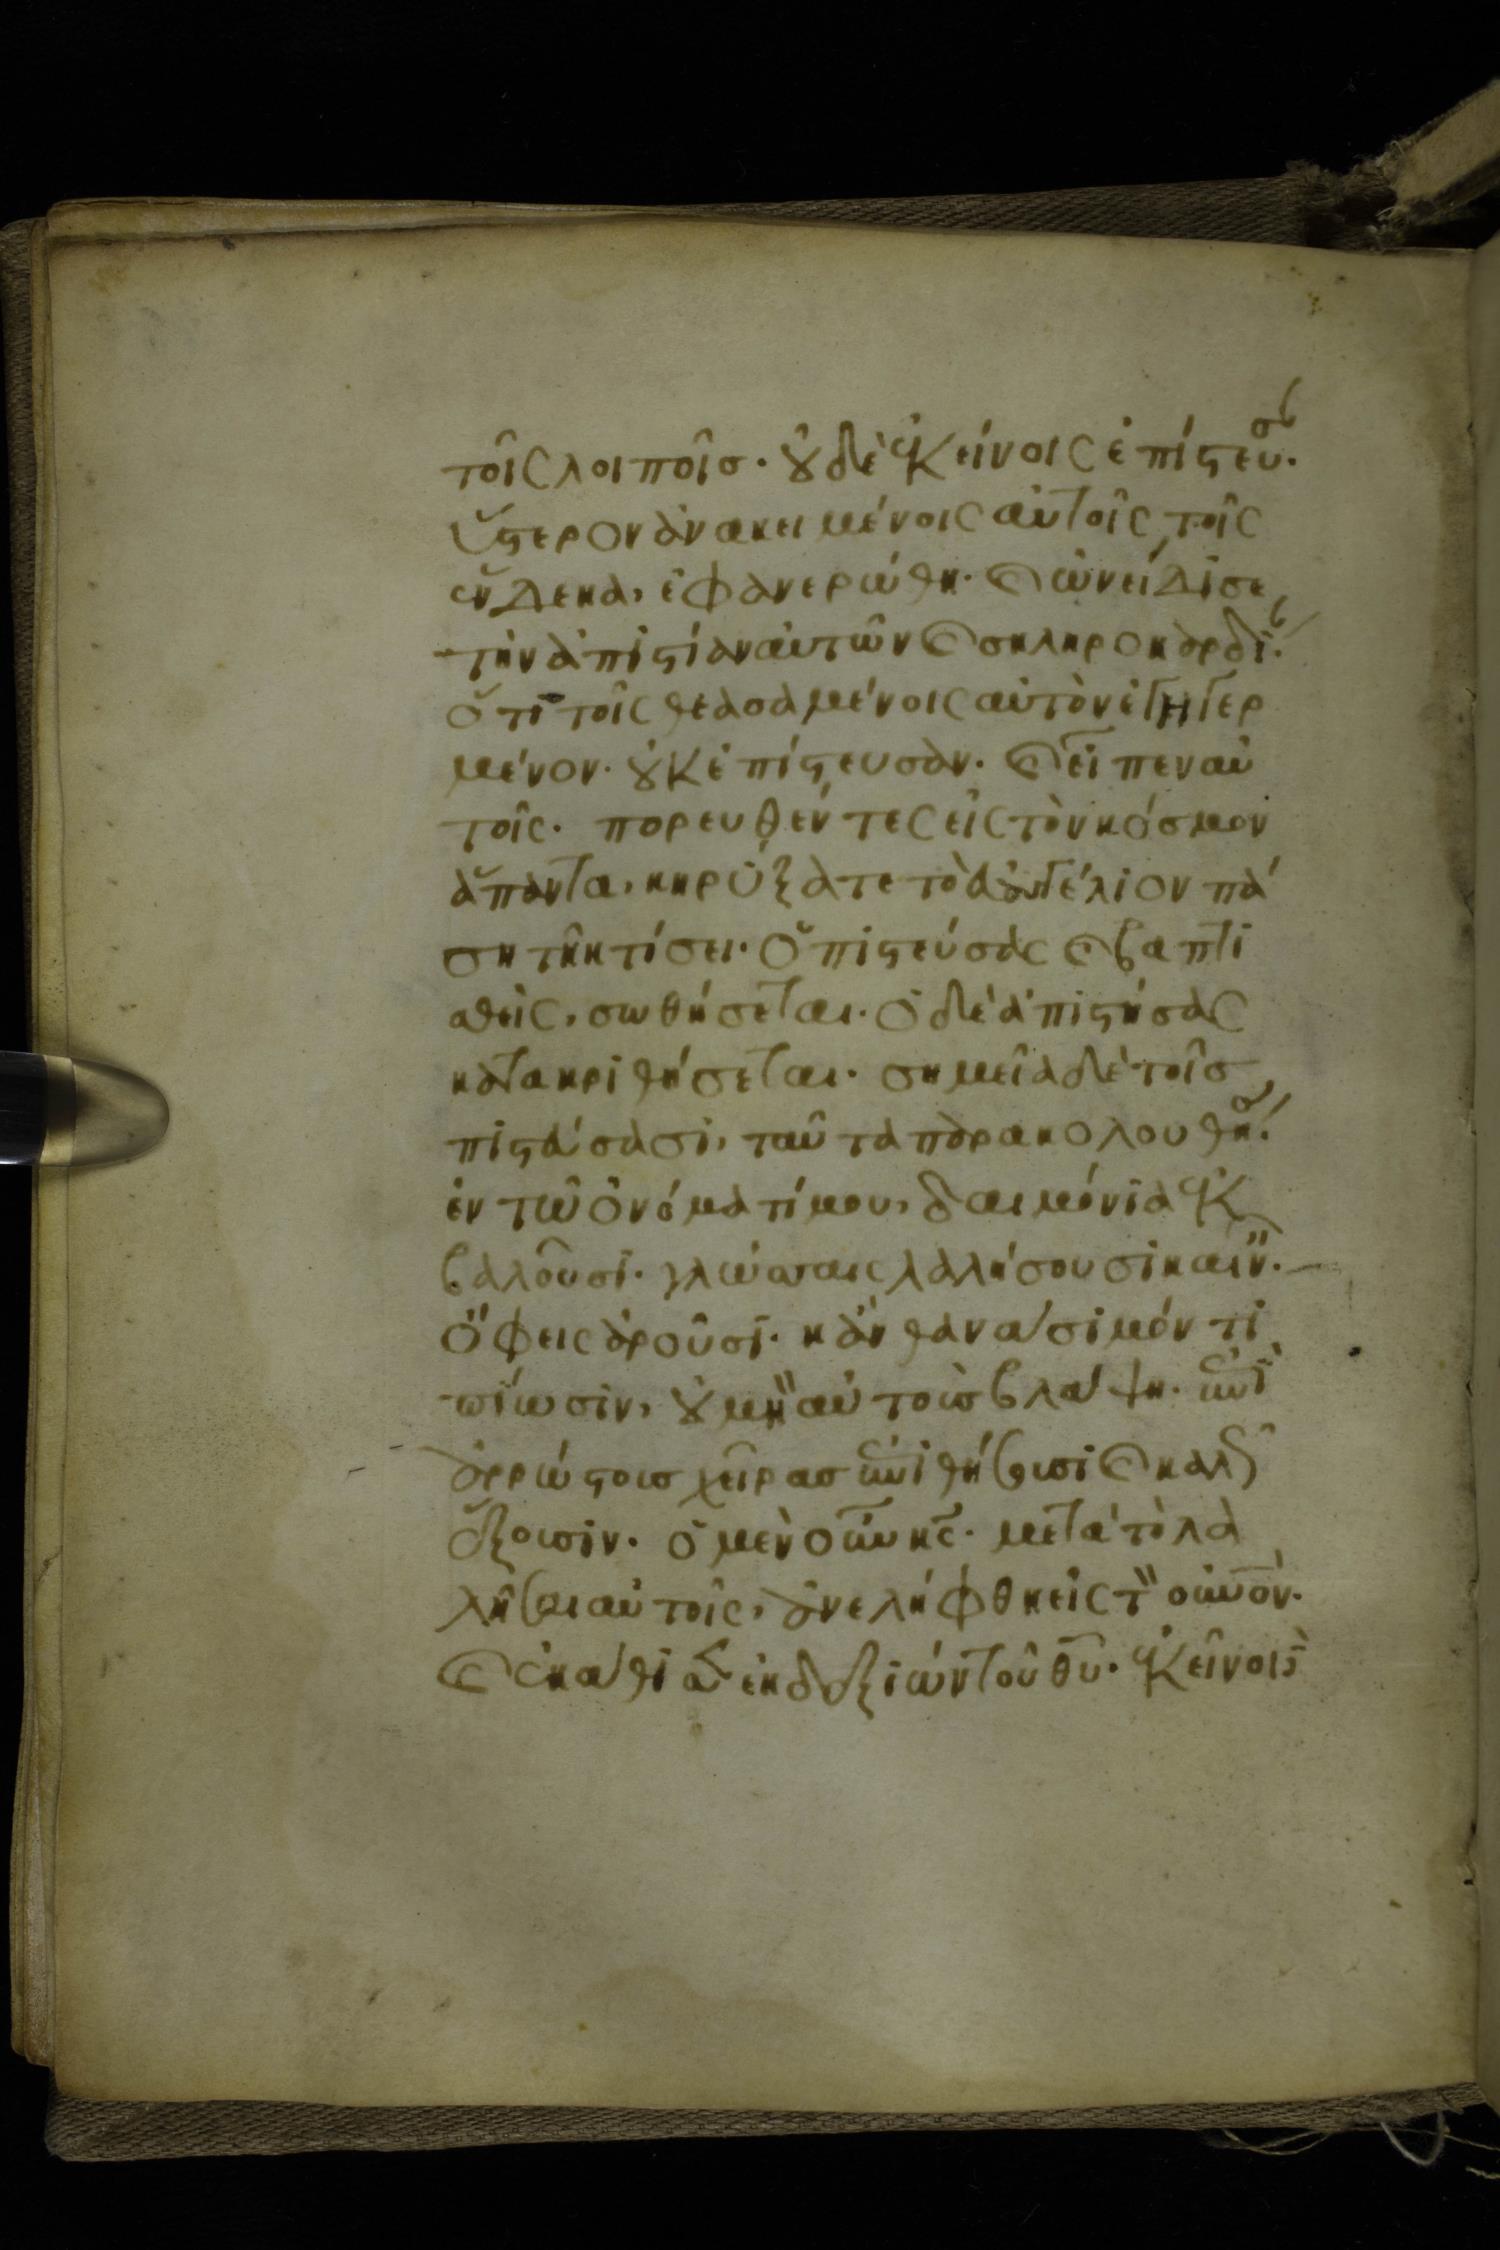 τοῖς λοιποῖσ· οὐδὲ ἐκείνοις ἐπίστευσ·
ὕστερον ἀνακειμένοις αὐτοῖς τοῖς
ἕνδεκα, ἐφανερώθη· καὶ ὠνείδισε
τὴν ἀπιστίαν αὐτῶν καὶ σκληροκαρδί·
ὅτι τοῖς θεασαμένοις αὐτὸν ἐγηγερ
μένον· οὐκ ἐπίστευσαν· καὶ εἶπεν αὐ
τοῖς· πορευθέντες εἰς τὸν κόσμον
ἅπαντα, κηρύξατε τὸ εὐαγγέλιον πά
ση τῆ κτίσει· ὁ πιστεύσας καὶ βαπτι
σθεὶς, σωθήσεται· ὁ δὲ ἀπιστήσας
κατακριθήσεται· σημεῖα δὲ τοῖσ
πιστεύσασι, ταῦτα παρακολουθήσ·
ἐν τῶ ὀνόματί μου, δαιμόνια ἐκ
βαλοῦσι· γλώσσαις λαλήσουσι καιν·
ὄφεις ἀροῦσι· κἂν θανάσιμόν τι
πίωσιν, οὐ μὴ αὐτοὺσ βλάψη· ἐπὶ
ἀρρώστουσ χεῖρασ ἐπιθήσουσι καὶ καλῶ
ἕξουσιν· ὁ μὲν οὖν κς· μετὰ τὸ λα
λῆσαι αὐτοῖς, ἀνελήφθη εἰς τὸν οὐνόν·
καὶ ἐκάθισεν ἐκ δεξιῶν τοῦ θυ· ἐκεῖνοι